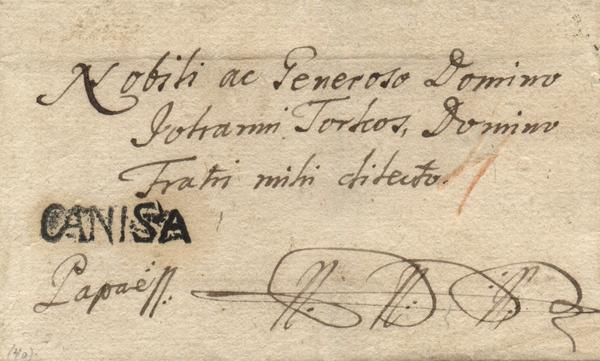 Nobili ac Generoso Domino
Johanni Torkos, Domino
Fratri mihi dilecto.
CANISA
Papae